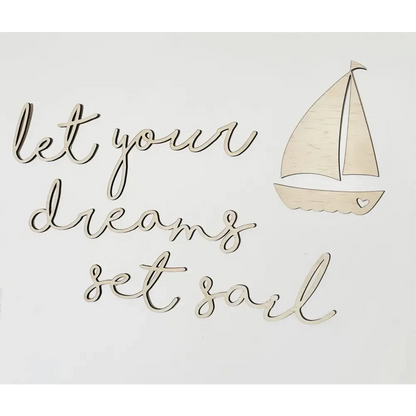 let your
dreams
set sail